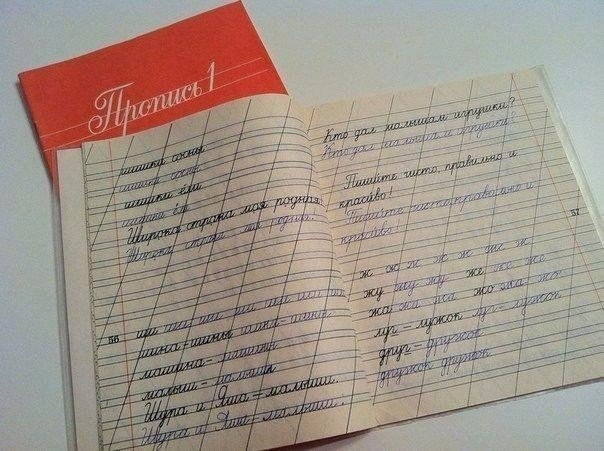 Пропись 1
шишки сосны
шишки сосны
шишки ёлки
шишки ёлки
Широка страна моя родная.
Широка страна моя родная.
56
шина - шины шина - шины
машина - машины
малыш - малыши
Шура и Яша - малыши.
Шура и Яша - малыши.
Кто дал малышам игрушки?
Кто дал малышам игрушки?
Пишите чисто, правильно и
красиво!
Пишите чисто, правильно и
красиво!
57
ж ж ж ж ж ж ж
жу жу жу же же же
жа жа жа жо жа жо
луг - лужок луг - лужок
друг - дружок
дружок дружок